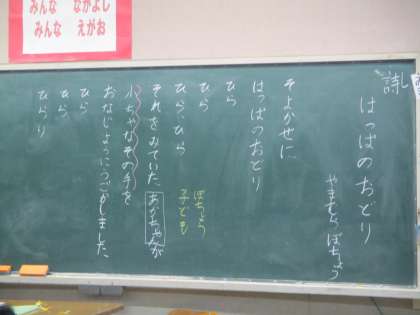 みんな なかよし
みんな えがお
詩
はっぱのおどり
やまむら ぼちょう
そよかぜに
はっぱのおどり
ひら
ひら
ひら、ひら
ぼちょう
子ども
それをみていた、あかちゃんが
小ちゃなその手を
おなじようにうごかしました、
ひら
ひら
ひらり